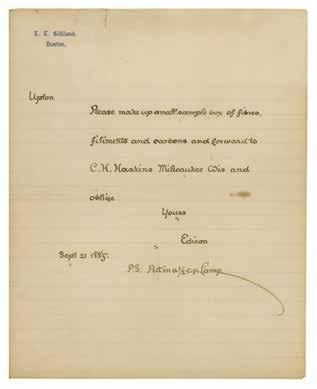 E. T. Gilliland,
Boston.
Upton
Please make up small sample box of fibres,
filiments and carbons and forward to
C.H. Haskins Milwaukee Wis and
oblige
Yours
Edison
Sept 21 1885.
P.S. Put in a ½ c.p. Lamp